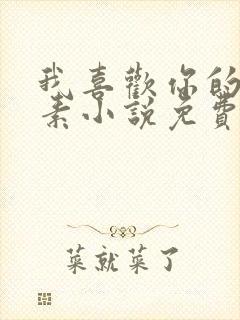 我喜歡你的
素小說免費
菜就菜了